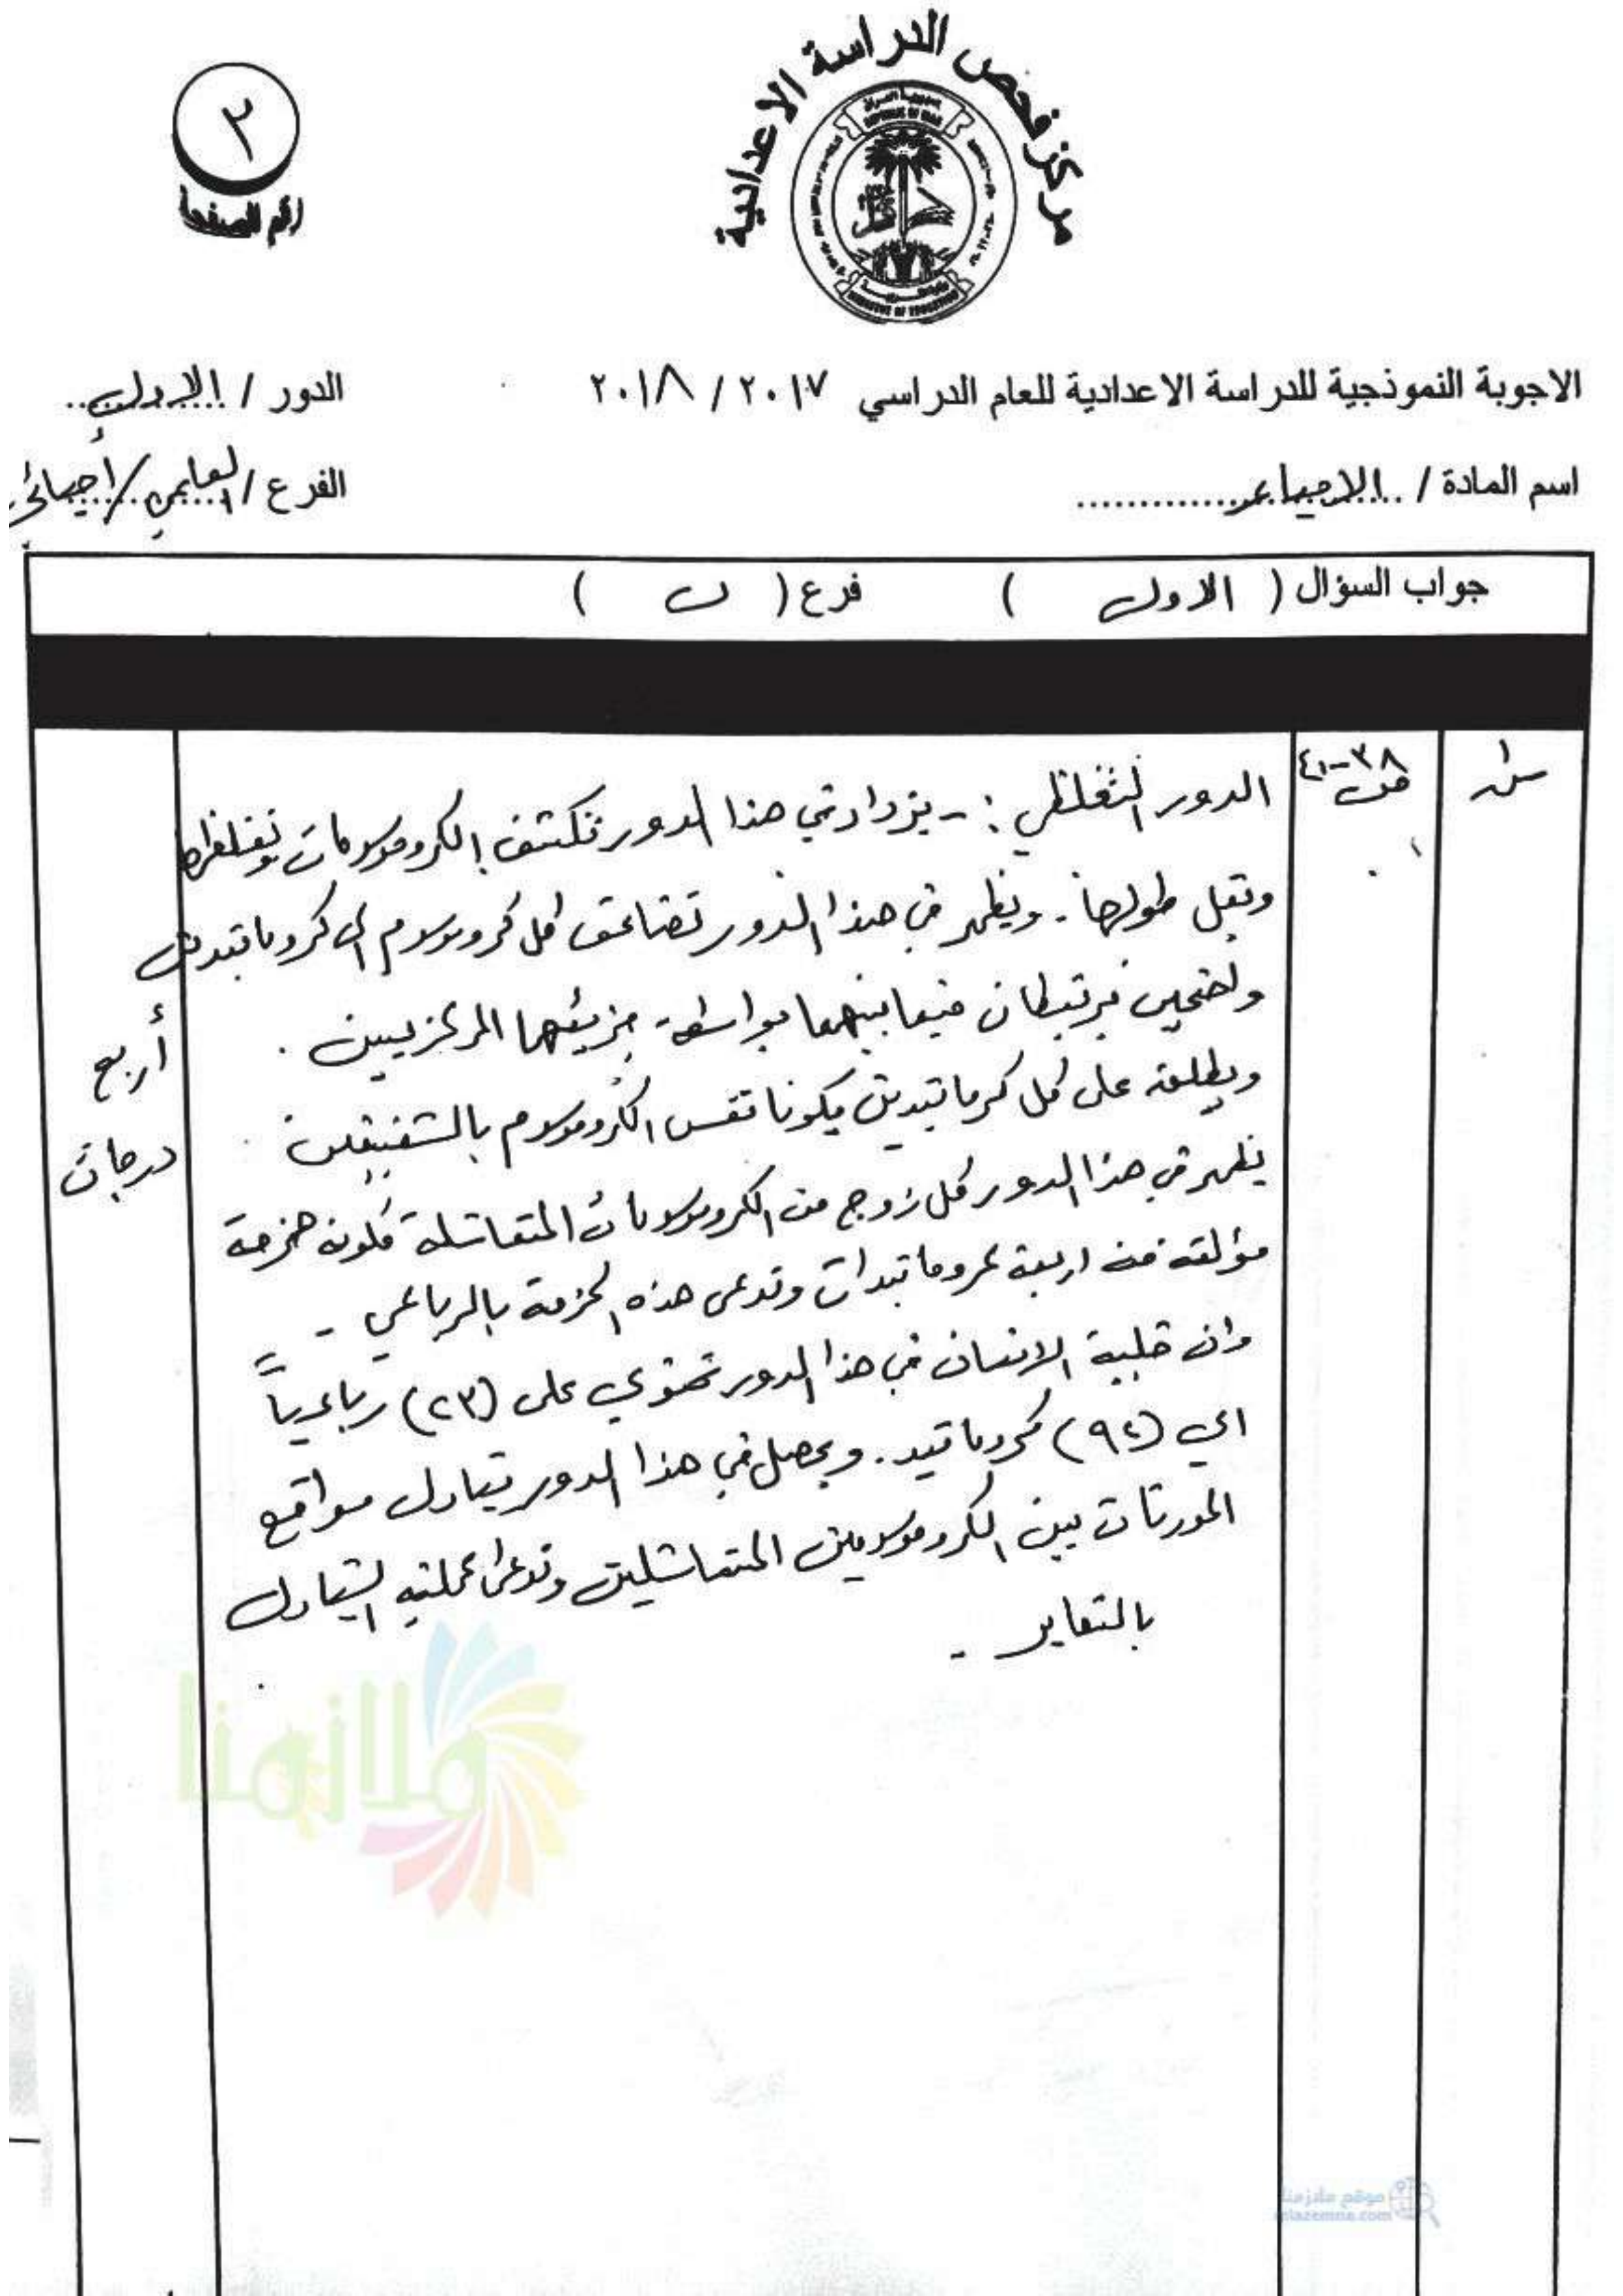 مركز فحص الدراسة الاعدادية
جمهورية العراق
REPUBLIC OF IRAQ
MINISTRY OF EDUCATION
٢
رقم الصفحة
الاجوبة النموذجية للدراسة الاعدادية للعام الدراسي ٢٠١٧ / ٢٠١٨
الدور / الاول
اسم المادة / الاحياء
الفرع / العلمي / أحيائي
جواب السؤال ( الاول ) فرع ( ب )
س١
ص ٣٨-٤١
الدور التغلظي :- يزداد في هذا الدور تكثف الكروموسومات وتغلظها
ويقل طولها . ويظهر في هذا الدور تضاعف كل كروموسوم الى كروماتيدين
واضحين يرتبطان فيما بينهما بواسطة جزيئهما المركزيين .
ويطلق على كل كرماتيدين يكونا نفس الكروموسوم بالشقيقين
يظهر في هذا الدور كل زوج من الكروموسومات المتماثلة مكونه حزمة
مؤلفة من اربعة كروماتيدات وتدعى هذه الحزمة بالرباعي -
وان خلية الانسان في هذا الدور تحتوي على (٢٣) رباعياً
اي (٩٢) كروماتيد . ويحصل في هذا الدور تبادل مواقع
المورثات بين الكروموسومين المتماثلين وتدعى عملية التبادل
بالتعابر -
أربع
درجات
ملازمنا
موقع ملازمنا
mlazemna.com